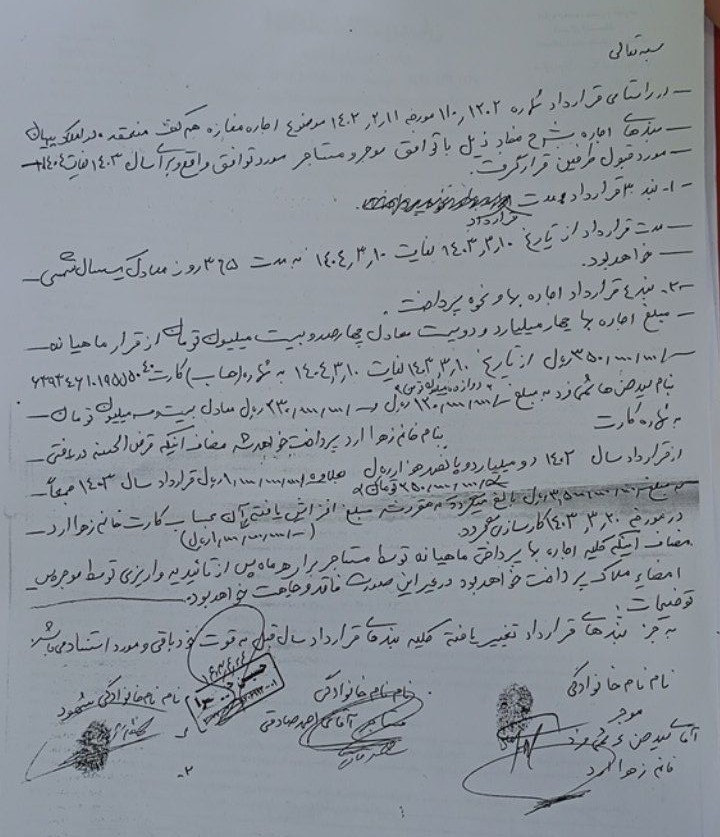 بسمه تعالی
- در راستای قرارداد شماره ۱۱۰٫۱۲۰۲ مورخه ۱۴۰۲٫۲٫۱۱ موضوع اجاره مغازه همکف منعقده
- بندهای اجاره بشرح مفاد ذیل با توافق موجر و مستاجر مورد توافق واقع و برای سال ۱۴۰۳ لغایت ۱۴۰۴
- مورد قبول طرفین قرار گرفت.
۱- بند ۳ قرارداد مدت
قرارداد
- مدت قرارداد از تاریخ ۱۴۰۳٫۳٫۱۰ لغایت ۱۴۰۴٫۳٫۱۰ به مدت ۳۶۵ روز معادل یکسال شمسی
- خواهد بود.
۲- بند ۴ قرارداد اجاره بها و نحوه پرداخت.
- مبلغ اجاره بها چهار میلیارد و دویست معادل چهارصد و بیست میلیون تومان از قرار ماهیانه
ریال از تاریخ ۱۴۰۳٫۳٫۱۰ لغایت ۱۴۰۴٫۳٫۱۰ به شماره (حساب) کارت
بنام به مبلغ ۱۲۰٫۰۰۰٫۰۰۰ ریال و ۲۳۰٫۰۰۰٫۰۰۰ ریال معادل بیست و سه میلیون تومان
به شماره کارت بنام خانم زهرا پرداخت خواهد شد مضاف اینکه قرض الحسنه دریافتی
از قرارداد سال ۱۴۰۲ دو میلیارد و پانصد هزار ریال بعلاوه ۱٫۰۰۰٫۰۰۰٫۰۰۰ ریال قرارداد سال ۱۴۰۳ جمعاً
به مبلغ ۳٫۵۰۰٫۰۰۰٫۰۰۰ ریال بالغ میگردد که مقرر شد مبلغ افزایش یافته آن بحساب کارت خانم زهرا
در مورخه ۱۴۰۳٫۳٫۲۰ کارسازی گردد. (۱٫۰۰۰٫۰۰۰٫۰۰۰ ریال)
مضاف اینکه کلیه اجاره بها پرداختی ماهیانه توسط مستاجر برای هر ماه پس از تائیدیه واریزی توسط موجر پس
امضاء ملاک پرداخت خواهد بود در غیر این صورت فاقد وجاهت خواهد بود.
توضیحات:
به جز بندهای قرارداد تغییر یافته کلیه بندهای قرارداد سال قبل به قوت خود باقی و مورد استناد می باشد.
نام نام خانوادگی
موجر
آقای
خانم زهرا
نام نام خانوادگی
مستاجر آقای صادقی
نام نام خانوادگی شهود
۱-
۲-